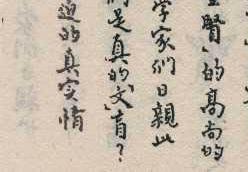 賢”的高尚的
学家们日親此
们是真的“文”盲？
迫的真实情